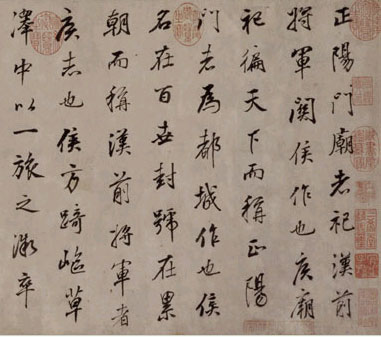 正陽門廟者祀漢前
將軍關侯作也侯廟
祀徧天下而稱正陽
門者為都城作也侯
名在百世封號在累
朝而稱漢前將軍者
侯志也侯方踦嶇草
澤中以一旅之微卒